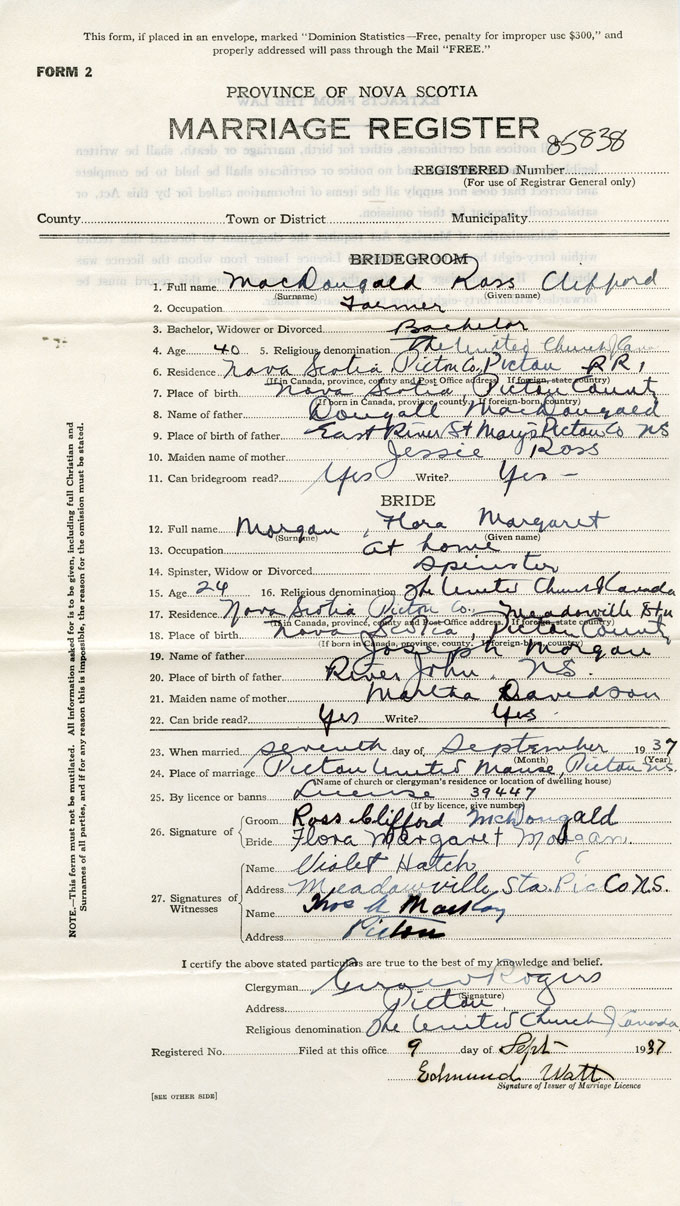 This form, if placed in an envelope, marked "Dominion Statistics—Free, penalty for improper use $300," and
properly addressed will pass through the Mail "FREE."
FORM 2
PROVINCE OF NOVA SCOTIA
MARRIAGE REGISTER
85838
REGISTERED Number
(For use of Registrar General only)
County Town or District Municipality
BRIDEGROOM
1. Full name MacDougald Ross Clifford
(Surname) (Given name)
2. Occupation Farmer
3. Bachelor, Widower or Divorced Bachelor
4. Age 40 5. Religious denomination The United Church
6. Residence Nova Scotia Picton Co, Picton RR 1
(If in Canada, province, county and Post Office address. If foreign, state country)
7. Place of birth Nova Scotia, Picton County
(If born in Canada, province, county. If foreign-born, country)
8. Name of father Dougall MacDougald
9. Place of birth of father East River St Marys Picton Co NS
10. Maiden name of mother Jessie Ross
11. Can bridegroom read? Yes Write? Yes —
BRIDE
12. Full name Morgan, Flora Margaret
(Surname) (Given name)
13. Occupation at home
14. Spinster, Widow or Divorced Spinster
15. Age 24 16. Religious denomination The United Church Kanada
17. Residence Nova Scotia Picton Co. Meadowville Stn
(If in Canada, province, county and Post Office address. If foreign state country)
18. Place of birth Nova Scotia, Picton County
(If born in Canada, province, county. If foreign-born, country)
19. Name of father Joseph Morgan
20. Place of birth of father River John. NS.
21. Maiden name of mother Martha Davidson
22. Can bride read? Yes Write? Yes
23. When married seventh day of September 1937
(Month) (Year)
24. Place of marriage Picton United Manse, Picton NS.
(Name of church or clergyman's residence or location of dwelling house)
25. By licence or banns License 39447
(If by licence, give number)
26. Signature of Groom Ross Clifford McDougald
Bride Flora Margaret Morgan.
27. Signatures of Witnesses
Name Violet Hatch
Address Meadowville Sta. Pic Co N.S.
Name Thos A MacKay
Address Picton
I certify the above stated particulars are true to the best of my knowledge and belief.
Clergyman Rogers
(Signature)
Address Picton
Religious denomination The United Church Canada
Registered No. Filed at this office 9 day of Sept 1937
Edmund Watt
Signature of Issuer of Marriage Licence
[SEE OTHER SIDE]
NOTE.—This form must not be mutilated. All information asked for is to be given, including full Christian and
Surnames of all parties, and if for any reason this is impossible, the reason for the omission must be stated.